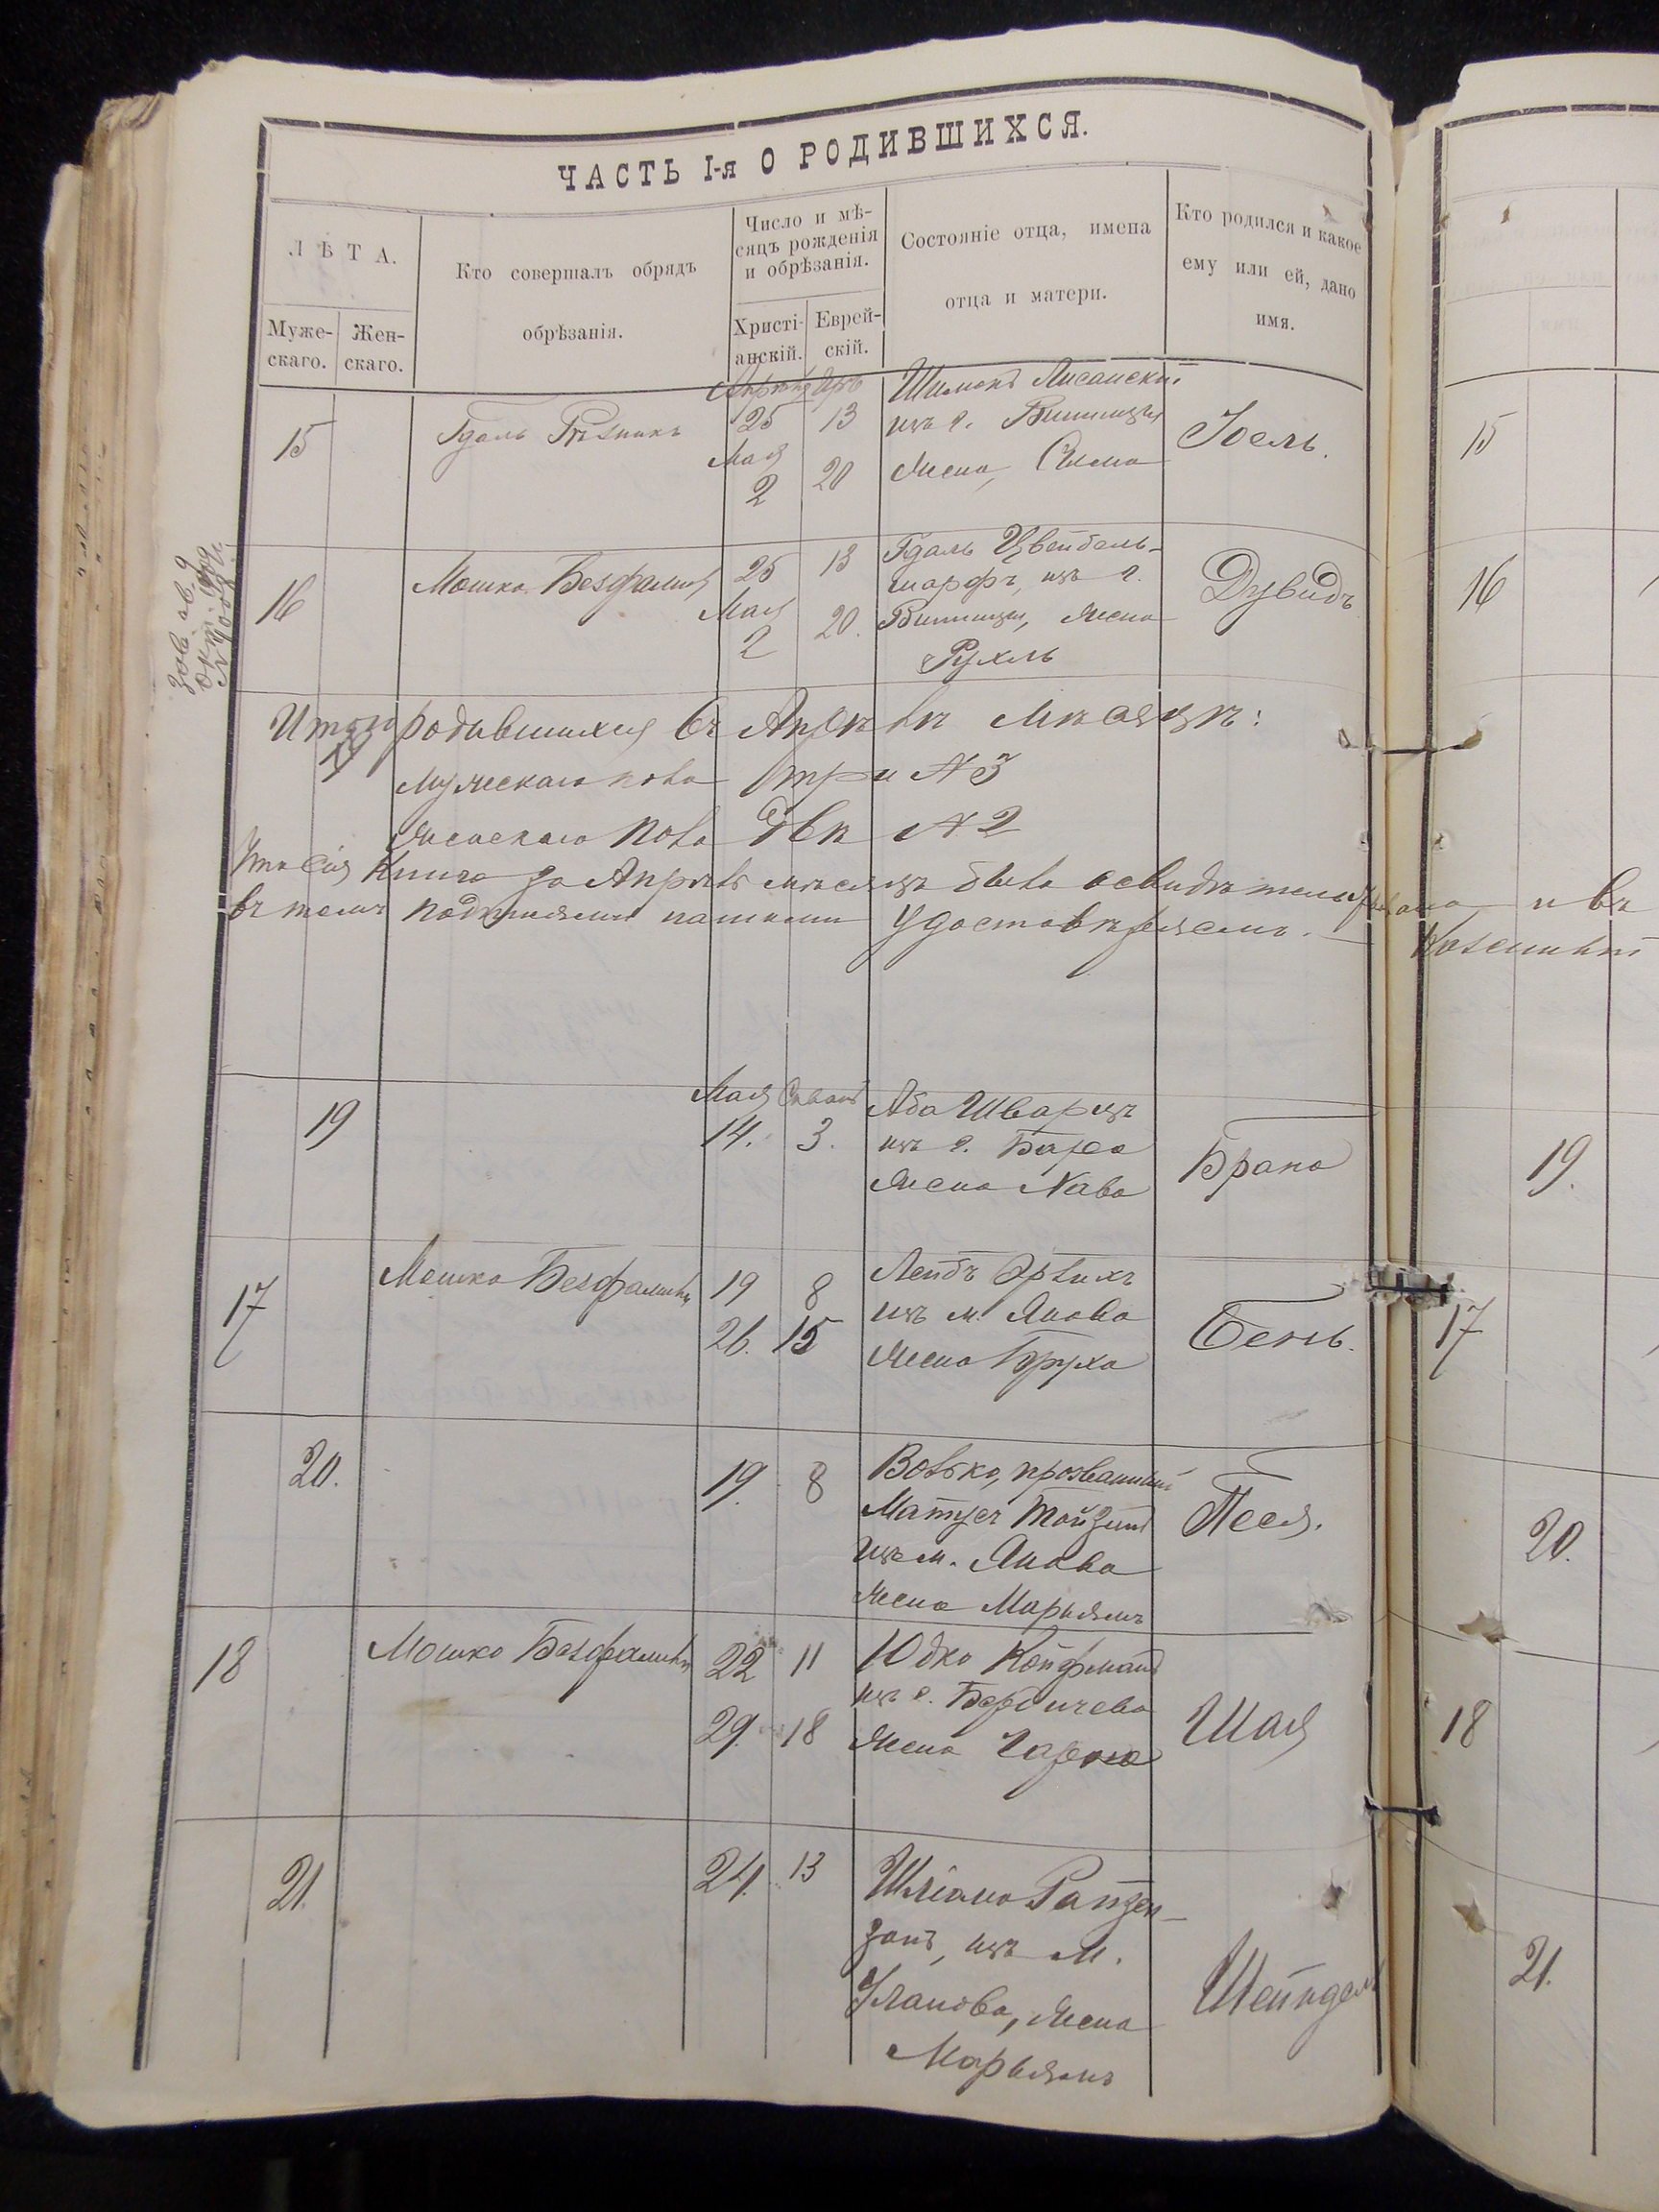 ЧАСТЬ I-я О РОДИВШИХСЯ.
ЛѢТА.
Муже-
скаго.
Жен-
скаго.
Кто совершалъ обрядъ
обрѣзанія.
Число и мѣ-
сяцъ рожденія
и обрѣзанія.
Христі-
анскій.
Еврей-
скій.
Состояніе отца, имена
отца и матери.
Кто родился и какое
ему или ей, дано
имя.
15
Гдаль Рѣзникъ
Апрѣль
25
Мая
2
Iяръ
13
20
Шимонъ Лисанскій
изъ г. Винницы
жена, Сима
Іоель.
15
16
Мошко Безфамил
25
Мая
2
13
20.
Гдаль Цвейбель-
шарфъ, изъ г.
Винницы, жена
Рухль
Дувидъ
16
Итого родившихся въ Апрѣлѣ мѣсяцѣ:
мужескаго пола три № 3
женскаго пола двѣ № 2
Книга за Апрѣль мѣсяцъ была освидѣтельствована и въ
въ томъ подписями нашими удостовѣряемъ. —
19
Мая
14.
Сиванъ
3.
Аба Шварцъ
изъ г. Бара
жена Хава
Брана
19.
17
Мошко Безфамильн
19
26.
8
15
Лейбъ
изъ м. Янова
жена Бруха
Бень.
17
20.
19.
8
Волько, прозванный
Матусъ
изъ м. Янова
жена Марьямъ
Песя.
20.
18
Мошко Безфамильн
22
29.
11
18
Юдко Койфманъ
изъ г. Бердичева
жена Чарна
Шая
18
21.
24.
13
Шліома Райзен-
изъ м.
Уланова, жена
Марьямъ
Шейндель
21.